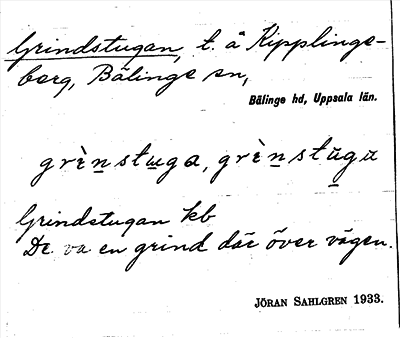 Grindstugan, t. å Kipplinge-
berg, Bälinge sn,
Bälinge hd, Uppsala län.
grìn̲stu̲ga, grìn̲stū̲ga
Grindstugan kb
De va en grind där över vägen.
JÖRAN SAHLGREN 1933.